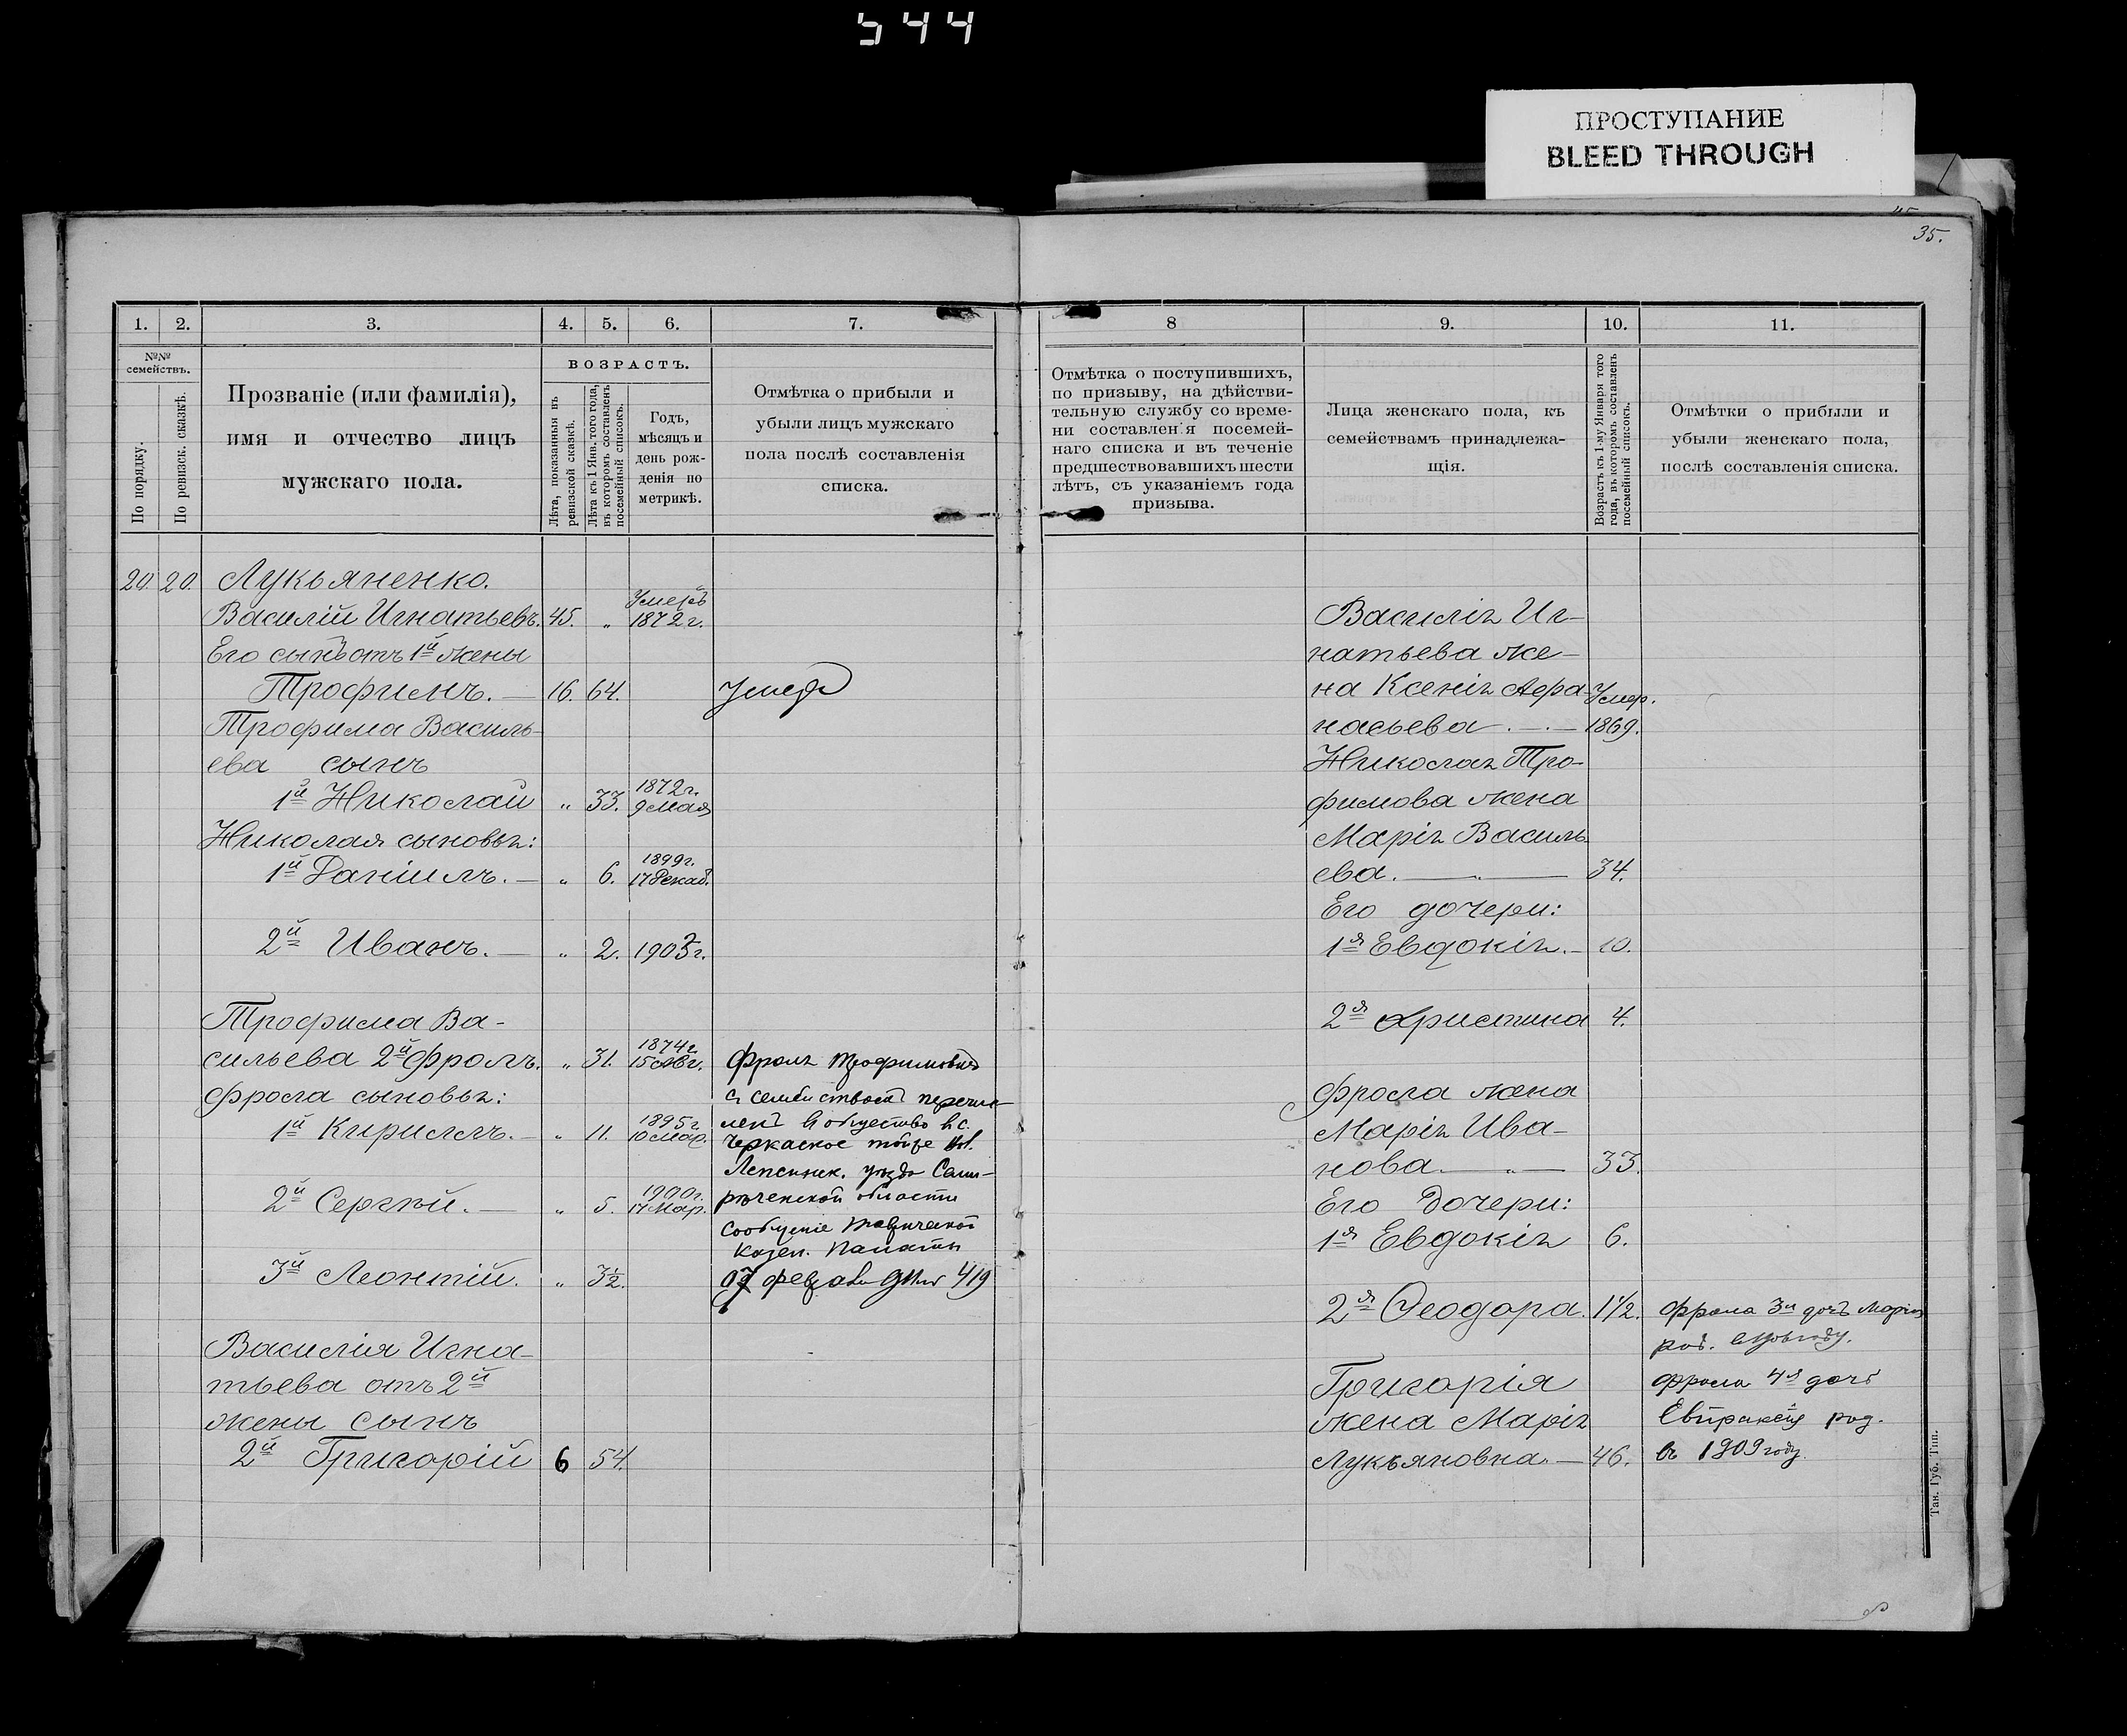 544
ПРОСТУПАНИЕ
BLEED THROUGH
35.
1. 2. 3. 4. 5. 6. 7.
№№ семействъ.
По порядку.
По ревизск. сказкѣ.
Прозваніе (или фамилія),
имя и отчество лицъ
мужскаго пола.
ВОЗРАСТЪ.
Лѣта, показанныя въ
ревизской сказкѣ.
Лѣта къ 1 Янв. того года,
въ которомъ составленъ
посемейный списокъ.
Годъ,
мѣсяцъ и
день рож-
денія по
метрикѣ.
Отмѣтка о прибыли и
убыли лицъ мужскаго
пола послѣ составленія
списка.
20. 20. Лукьяненко.
Умеръ
Василій Игнатьевъ. 45. „ 1872 г.
Его сынъ отъ 1й жены
Трофимъ. — 16. 64. умеръ
Трофима Василь-
ева сынъ
1872 г.
1й Николай „ 33. 9 мая
Николая сыновья:
1899 г.
1й Даніилъ. — „ 6. 17 Декаб.
2й Иванъ. — „ 2. 1903 г.
Трофима Ва-
1874 г.
сильева 2й Фролъ. „ 31. 15 Авг. Фролъ Трофимовъ
Фрола сыновья: съ семействомъ перечис-
1895 г. ленъ въ общество с.
1й Кириллъ. — „ 11. 10 Мар. Черкаское той же вол.
Лепсинск. уѣзда Семи-
1900 г. рѣченской области
2й Сергѣй. — „ 5. 17 Мар.
сообщеніе Таврической
Казен. Палаты
3й Леонтій. „ 3½. 07 феврал 419
Василія Игна-
тьева отъ 2й
жены сынъ
2й Григорій 6 54.
8 9. 10. 11.
Отмѣтка о поступившихъ,
по призыву, на дѣйстви-
тельную службу со време-
ни составленія посемей-
наго списка и въ теченіе
предшествовавшихъ шести
лѣтъ, съ указаніемъ года
призыва.
Лица женскаго пола, къ
семействамъ принадлежа-
щія.
Возрастъ къ 1-му Января того
года, въ которомъ составленъ
посемейный списокъ.
Отмѣтки о прибыли и
убыли женскаго пола,
послѣ составленія списка.
Василія Иг-
натьева же-
на Ксенія Афа- Умер.
насьева — 1869.
Николая Тро-
фимова жена
Марія Василь-
ева. — 34.
Его дочери:
1я Евдокія. — 10.
2я Христина 4.
Фрола жена
Марія Ива-
нова — „ — 33.
Его Дочери:
1я Евдокія 6.
2я Ѳеодора. 1½. Фрола 3я дочь Марія
род.
Григорія Фрола 4я дочь
жена Марія Евпраксія род.
Лукьяновна. — 46. въ 1909 году
Тав. Губ. Тип.